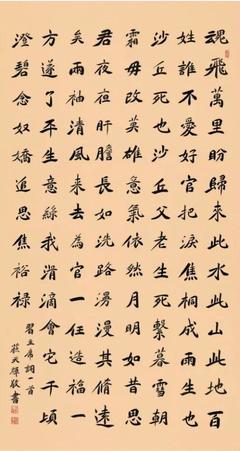 魂飛萬里盼歸來此水此山此地百
姓誰不愛好官把淚焦桐成雨生也
沙丘死也沙丘父老生死繫暮雪朝
霜毋改英雄意氣依然月明如昔思
君夜夜肝膽長如洗路漫漫其脩遠
矣兩袖清風來去為官一任造福一
方遂了平生意綠我涓滴會它千頃
澄碧念奴嬌追思焦裕祿
習主席詞一首
敬書